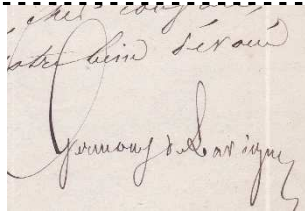 cher
Votre bien dévoué
Germond de Lavigne